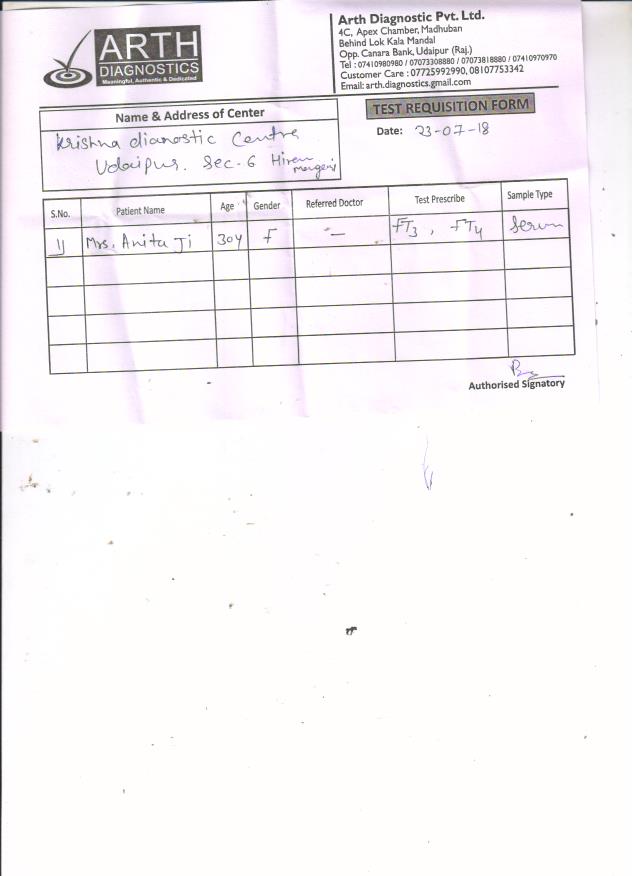 ARTH
DIAGNOSTICS
Meaningful, Authentic & Dedicated
Arth Diagnostic Pvt. Ltd.
4C, Apex Chamber, Madhuban
Behind Lok Kala Mandal
Opp. Canara Bank, Udaipur (Raj.)
Tel : 07410980980 / 07073308880 / 07073818880 / 07410970970
Customer Care : 07725992990, 08107753342
Email: arth.diagnostics.gmail.com
TEST REQUISITION FORM
Date: 23-07-18
Name & Address of Center
Krishna dianostic Centre
Udaipur. Sec-6 Hiren
S.No. Patient Name Age Gender Referred Doctor Test Prescribe Sample Type
1) Mrs. Anita Ji 30Y F — FT3, FT4 Serum
Authorised Signatory